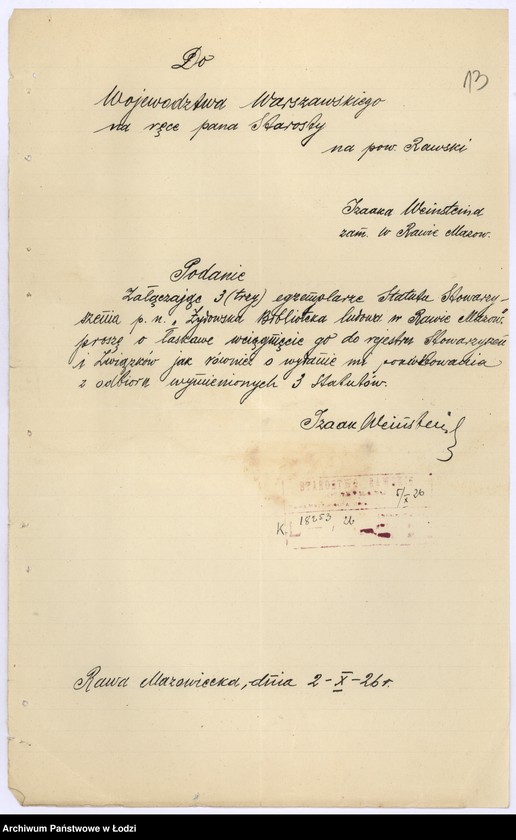 Do
13
Województwa Warszawskiego
na ręce pana Starosty
na pow. Rawski
Izaaka Weinsteina
zam. w Rawie Mazow.
Podanie
Załączając 3 (trzy) egzemplarze Statutu Stowarzy-
szenia p. n. „Żydowska Bibljoteka ludowa w Rawie Mazow."
proszę o łaskawe wciągnięcie go do rejestru Stowarzyszeń
i Związków jak również o wydanie mi pokwitowania
z odbioru wymienionych 3 statutów.
Izaak Weinstein
STAROSTWO RAWSKIE
5/X 26
K. L 18253 26
Rawa Mazowiecka, dnia 2-X-26 r.
Archiwum Państwowe w Łodzi